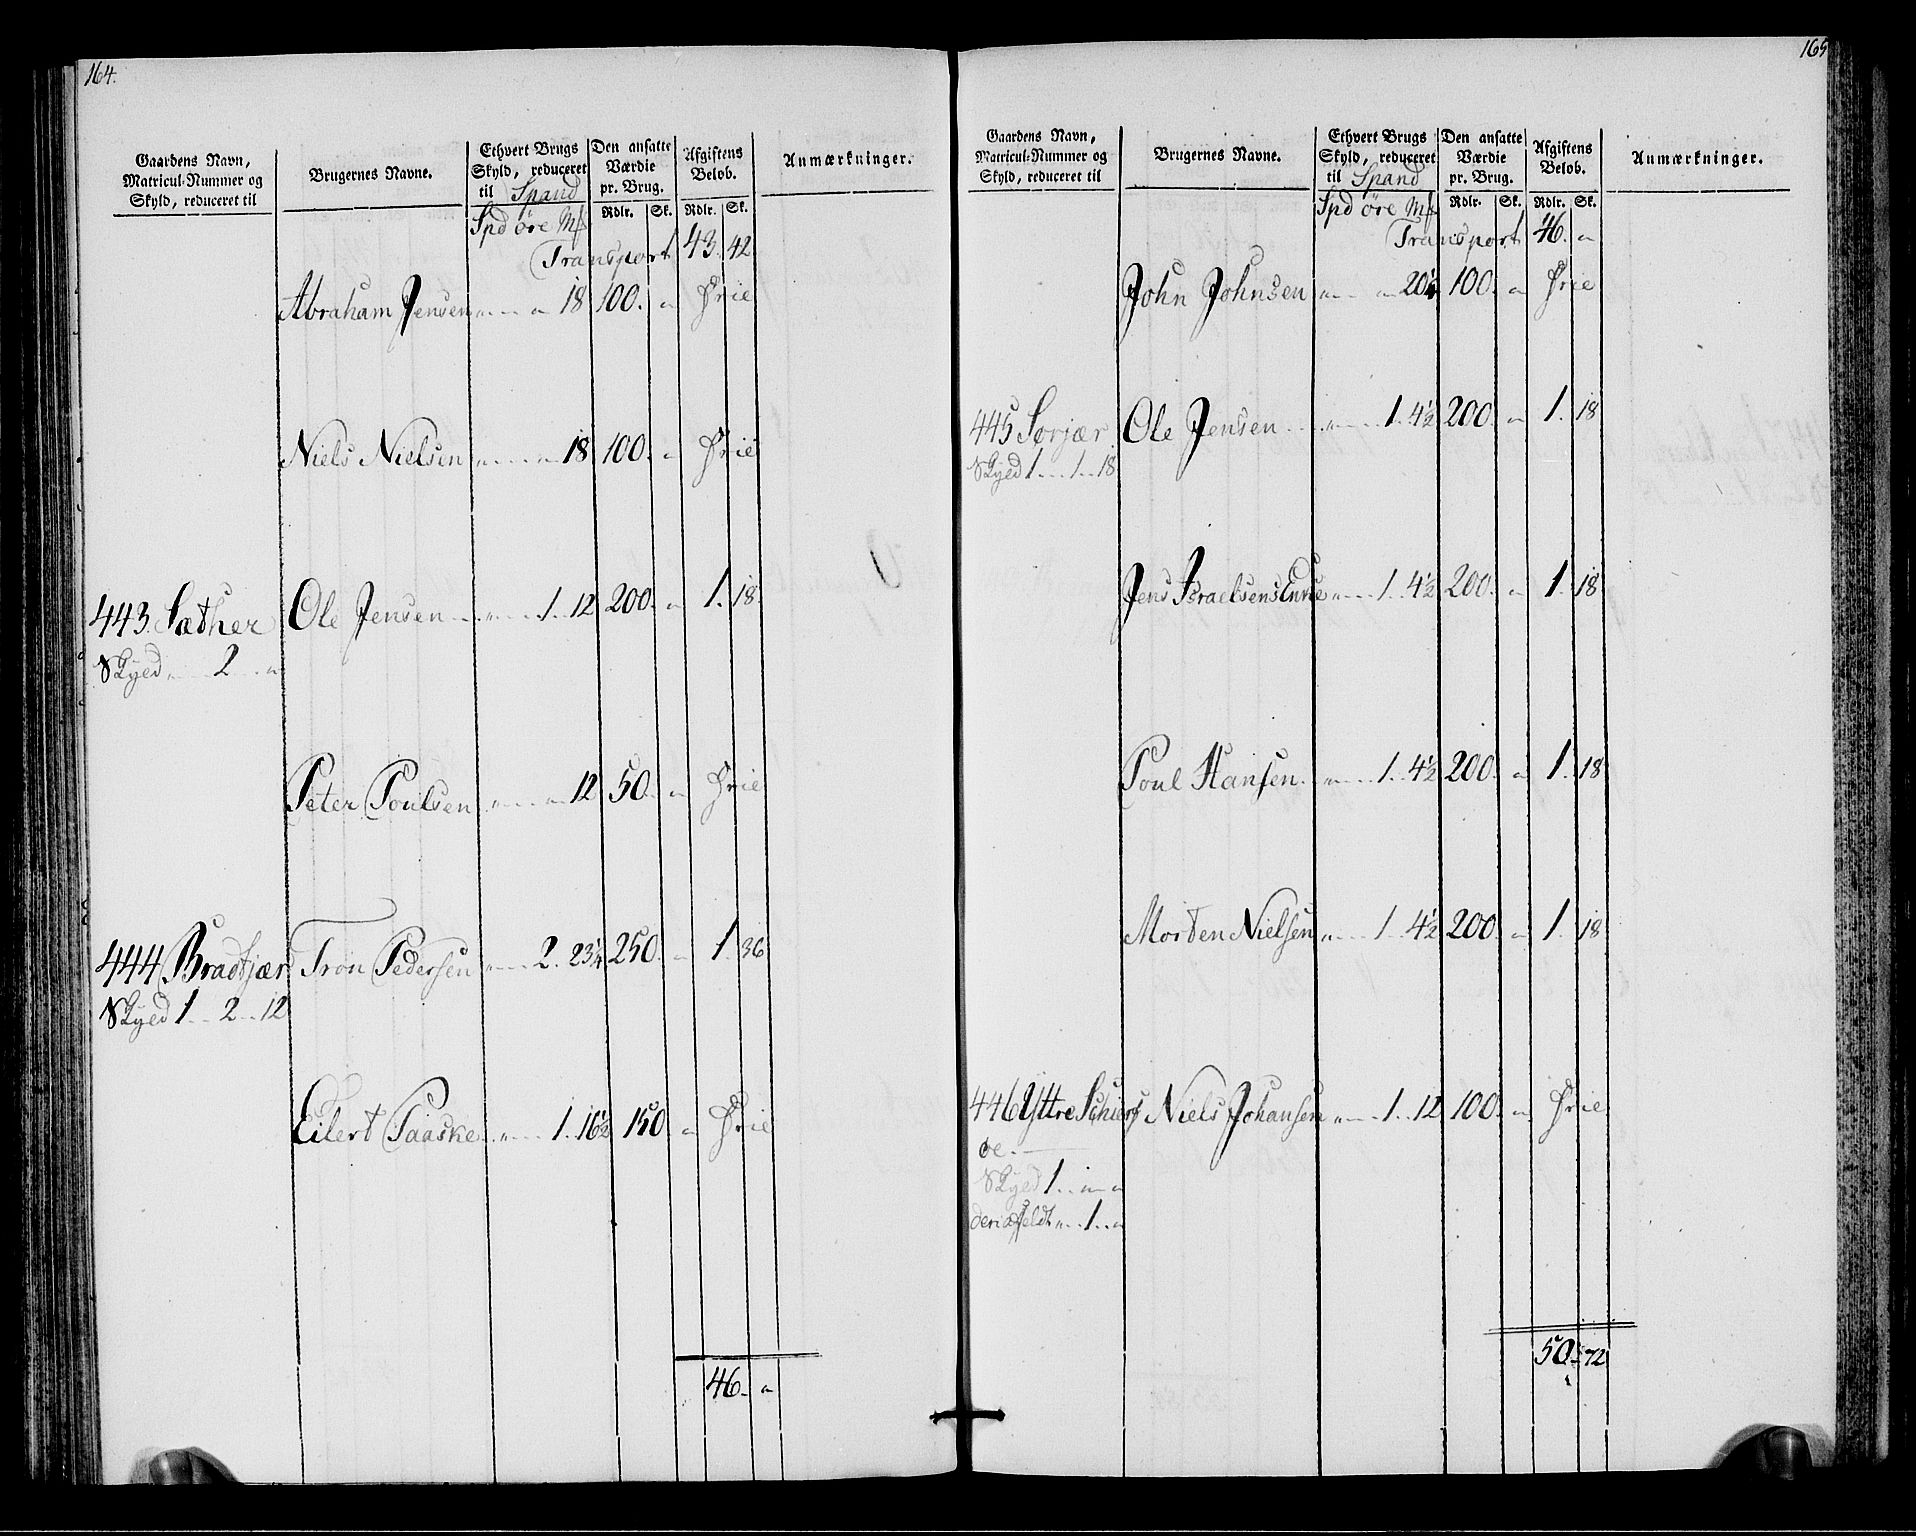 164.
Gaardens Navn, Matricul-Nummer og Skyld, reduceret til
Brugernes Navne.
Ethvert Brugs Skyld, reduceret til Spand
Den ansatte Værdie pr. Brug.
Afgiftens Beløb.
Anmærkninger.
Rdlr. Sk. Rdlr. Sk.
Spd öre Mk
Transport 43. 42
Abraham Jensen " " 18 100. " Frie
Niels Nielsen " " 18 100. " Frie
443. Sæther Ole Jensen " 1. 12 200. " 1. 18.
Skyed " 2 "
Peter Poulsen " " 12 50. " Frie
444 Bradtjær Tron Pedersen " 2. 23¼ 250. " 1. 36
Skyed 1 2 12
Eilert Paaske " 1. 16½ 150 " Frie
46. "
165
Gaardens Navn, Matricul-Nummer og Skyld, reduceret til
Brugernes Navne.
Ethvert Brugs Skyld, reduceret til Spand
Den ansatte Værdie pr. Brug.
Afgiftens Beløb.
Anmærkninger.
Rdlr. Sk. Rdlr. Sk.
Spd öre Mk
Transport 46. "
John Johnsen " " 20¼ 100. " Frie
445 Sørjær Ole Jensen " 1. 4½ 200 " 1. 18
Skyed 1 1 18
Jens Israelsens Enke " 1. 4½ 200. " 1. 18
Poul Hansen " 1. 4½ 200. " 1. 18
Morten Nielsen " 1 4½ 200. " 1. 18
446 Yttre Schierf Niels Johansen " 1. 12 100. " Frie
öe.
Skyed 1 " "
deriaffeldt " 1 "
50. 72